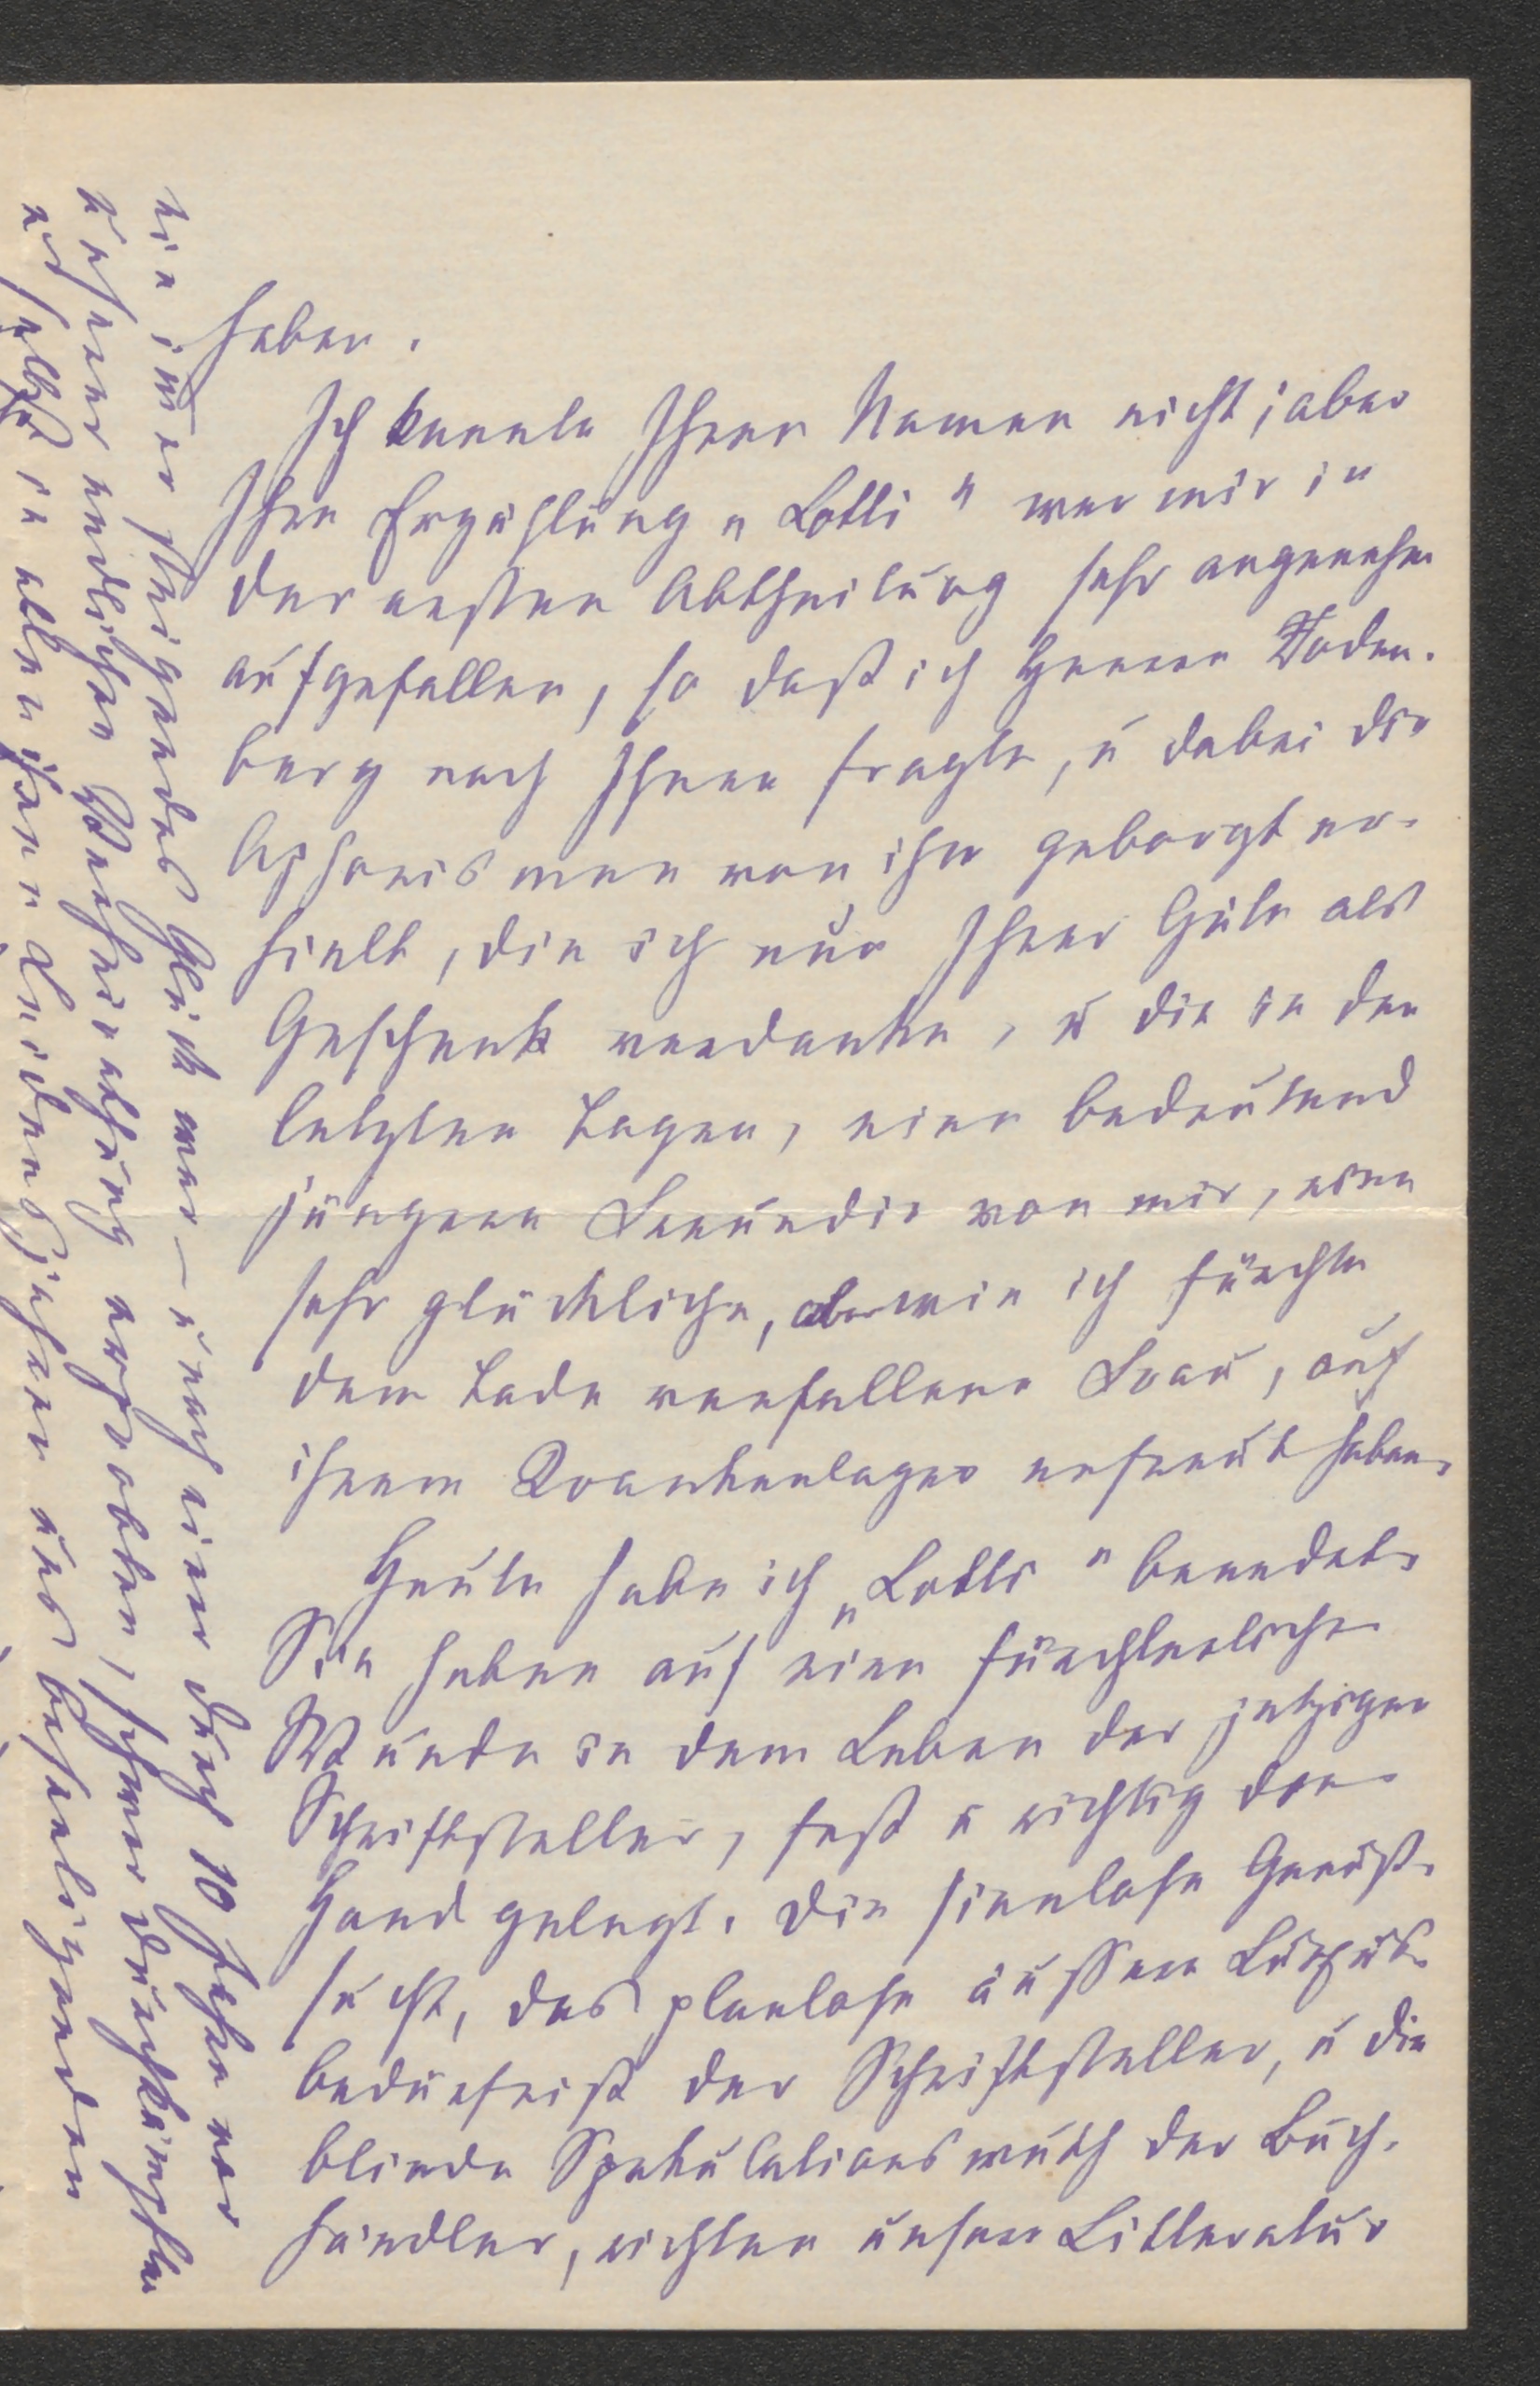 haben.
Ich kannte Ihren Namen nicht; aber
Ihre Erzählung „Lotti" war mir in
der ersten Abtheilung sehr angenehm
aufgefallen, so daß ich Herrn Roden-
berg nach Ihnen fragte, u dabei die
Aphorismen von ihm geborgt er-
hielt, die ich nun Ihrer Güte als
Geschenk verdanke, u die in den
letzten Tagen, eine bedeutend
jüngere Freundin von mir, eine
sehr glückliche, aber wie ich fürchte
dem Tode verfallene Frau, auf
ihrem Krankenlager erfreut haben.
Heute habe ich „Lotti" beendet.
Sie haben auf eine fürchterliche
Wunde in dem Leben der jetzigen
Schriftsteller, fest u richtig die
Hand gelegt. Die sinnlose Genuß-
sucht, das planlose äußere Luxus-
bedürfniß der Schriftsteller, u die
blinde Spekulationswuth der Buch-
händler, richten unsere Litteratur
ein immer steigendes Glück war – u nach einer durch 10 Jahre vor
unserer endlichen Verheirathung erhofften, schwer durchkämpften
u selbst in allen ihren Leidensjahren uns beseeligenden